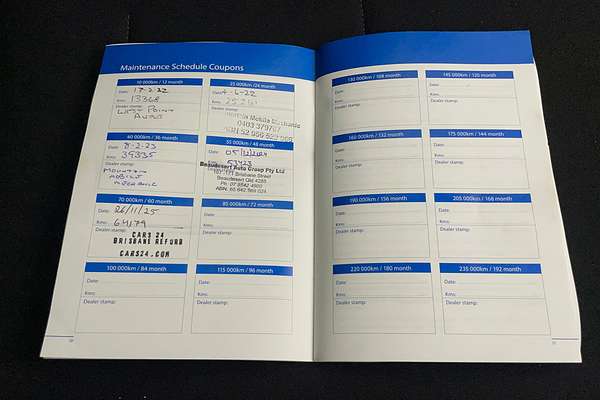 Maintenance Schedule Coupons
10 000km / 12 month
Date: 17-2-22
Kms: 13368
Dealer stamp:
WEST POINT
AUTOS
25 000km /24 month
Date: 4-6-22
Kms:
Dealer stamp:
Mobile Mechanic
0403 379767
40 000km / 36 month
Date: 8-2-23
Kms: 39335
Dealer stamp:
MOUNTAIN
MOBILE
MECHANIC
55 000km / 48 month
Date: 05/12/2024
Kms: 53423
Beaudesert Auto Group Pty Ltd
Brisbane Street
Beaudesert Qld 4285
Ph: 07 5542 4900
70 000km / 60 month
Date: 26/11/25
Kms: 64179
Dealer stamp:
CARS 24
BRISBANE REFURB
CARS24.COM
85 000km / 72 month
Date:
Kms:
Dealer stamp:
100 000km / 84 month
Date:
Kms:
Dealer stamp:
115 000km / 96 month
Date:
Kms:
Dealer stamp:
130 000km / 108 month
Date:
Kms:
Dealer stamp:
145 000km / 120 month
Date:
Kms:
Dealer stamp:
160 000km / 132 month
Date:
Kms:
Dealer stamp:
175 000km / 144 month
Date:
Kms:
Dealer stamp:
190 000km / 156 month
Date:
Kms:
Dealer stamp:
205 000km / 168 month
Date:
Kms:
Dealer stamp:
220 000km / 180 month
Date:
Kms:
Dealer stamp:
235 000km / 192 month
Date:
Kms:
Dealer stamp: